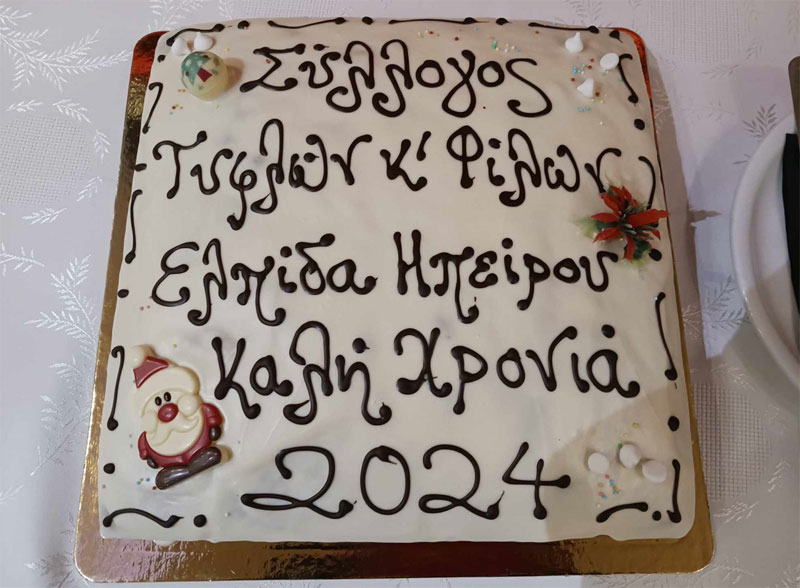 Σύλλογος
Τυφλών κ' Φίλων
Ελπίδα Ηπείρου
Καλή Χρονιά
2024